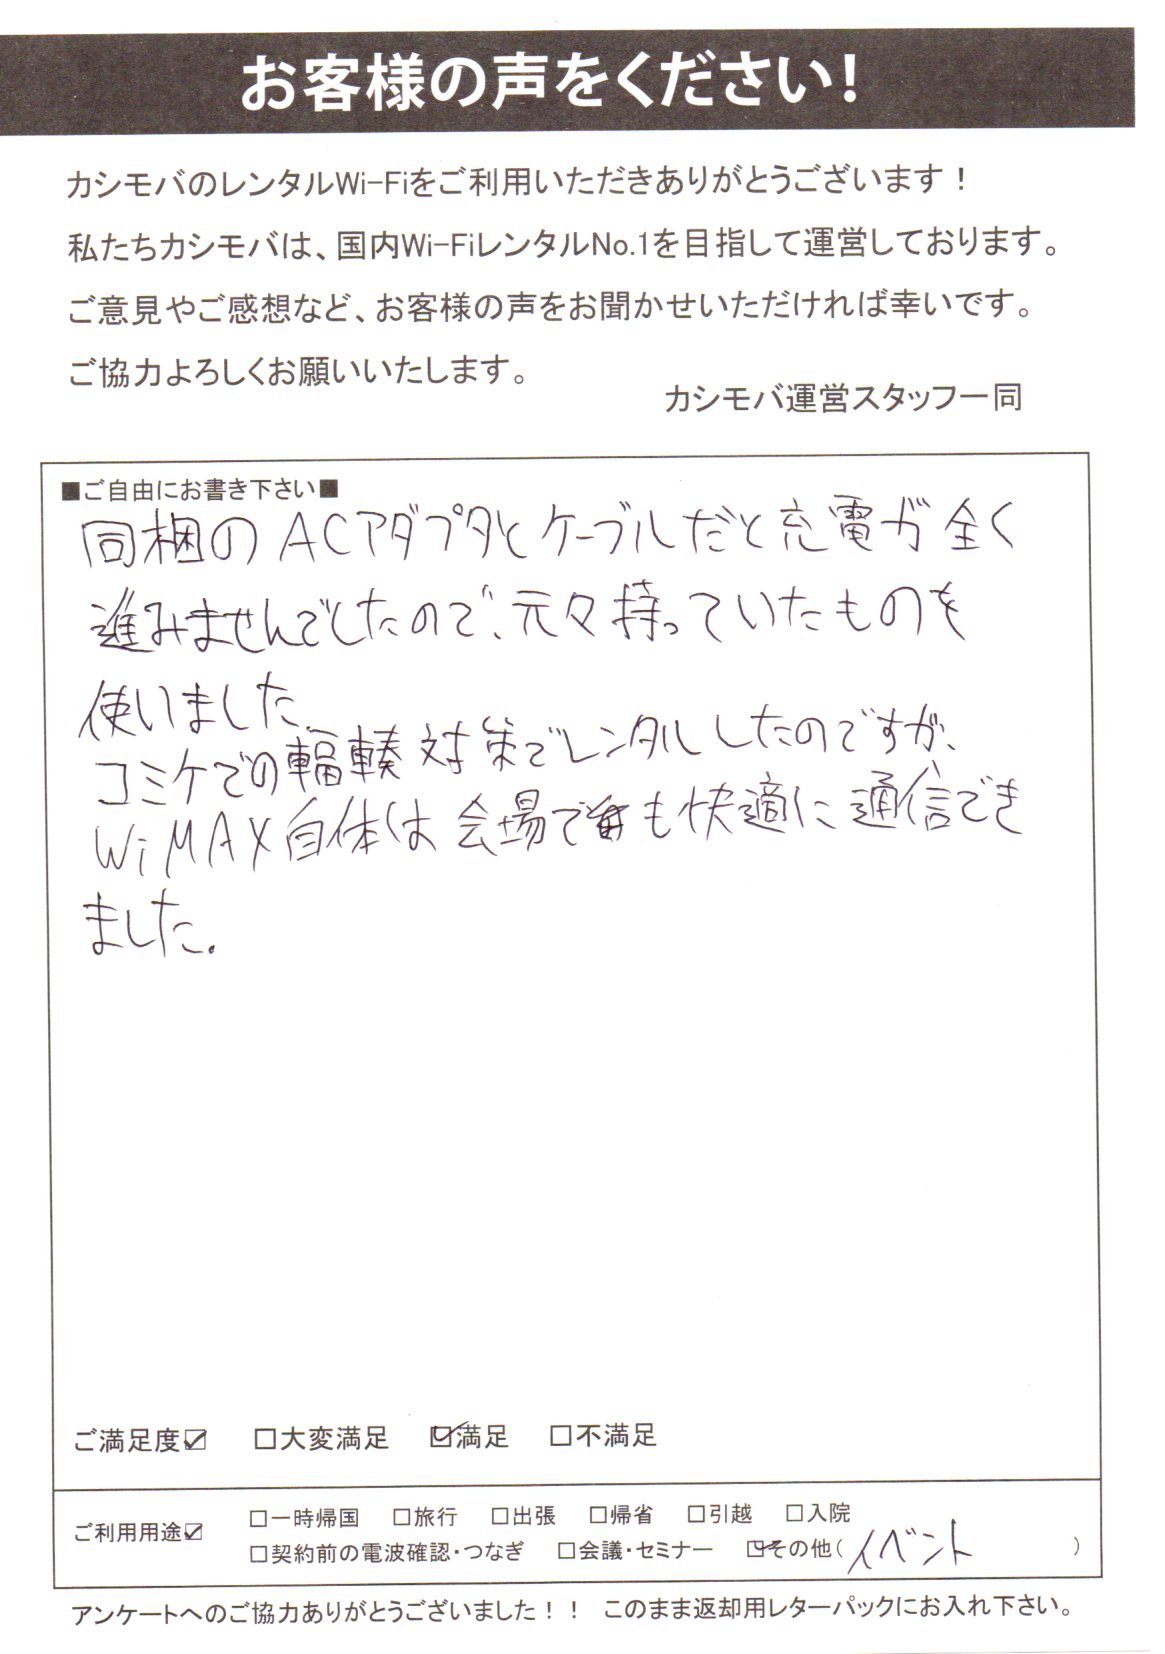 お客様の声をください!
カシモバのレンタルWi-Fiをご利用いただきありがとうございます!
私たちカシモバは、国内Wi-FiレンタルNo.1を目指して運営しております。
ご意見やご感想など、お客様の声をお聞かせいただければ幸いです。
ご協力よろしくお願いいたします。
カシモバ運営スタッフ一同
■ご自由にお書き下さい■
同梱のACアダプタとケーブルだと充電が全く
進みませんでしたので、元々持っていたものを
使いました。
コミケでの輻輳対策でレンタルしたのですが、
WiMAX自体は会場でも快適に通信でき
ました。
ご満足度☑ □大変満足 ☑満足 □不満足
ご利用用途☑ □一時帰国 □旅行 □出張 □帰省 □引越 □入院
□契約前の電波確認・つなぎ □会議・セミナー ☑その他(イベント)
アンケートへのご協力ありがとうございました!! このまま返却用レターパックにお入れ下さい。